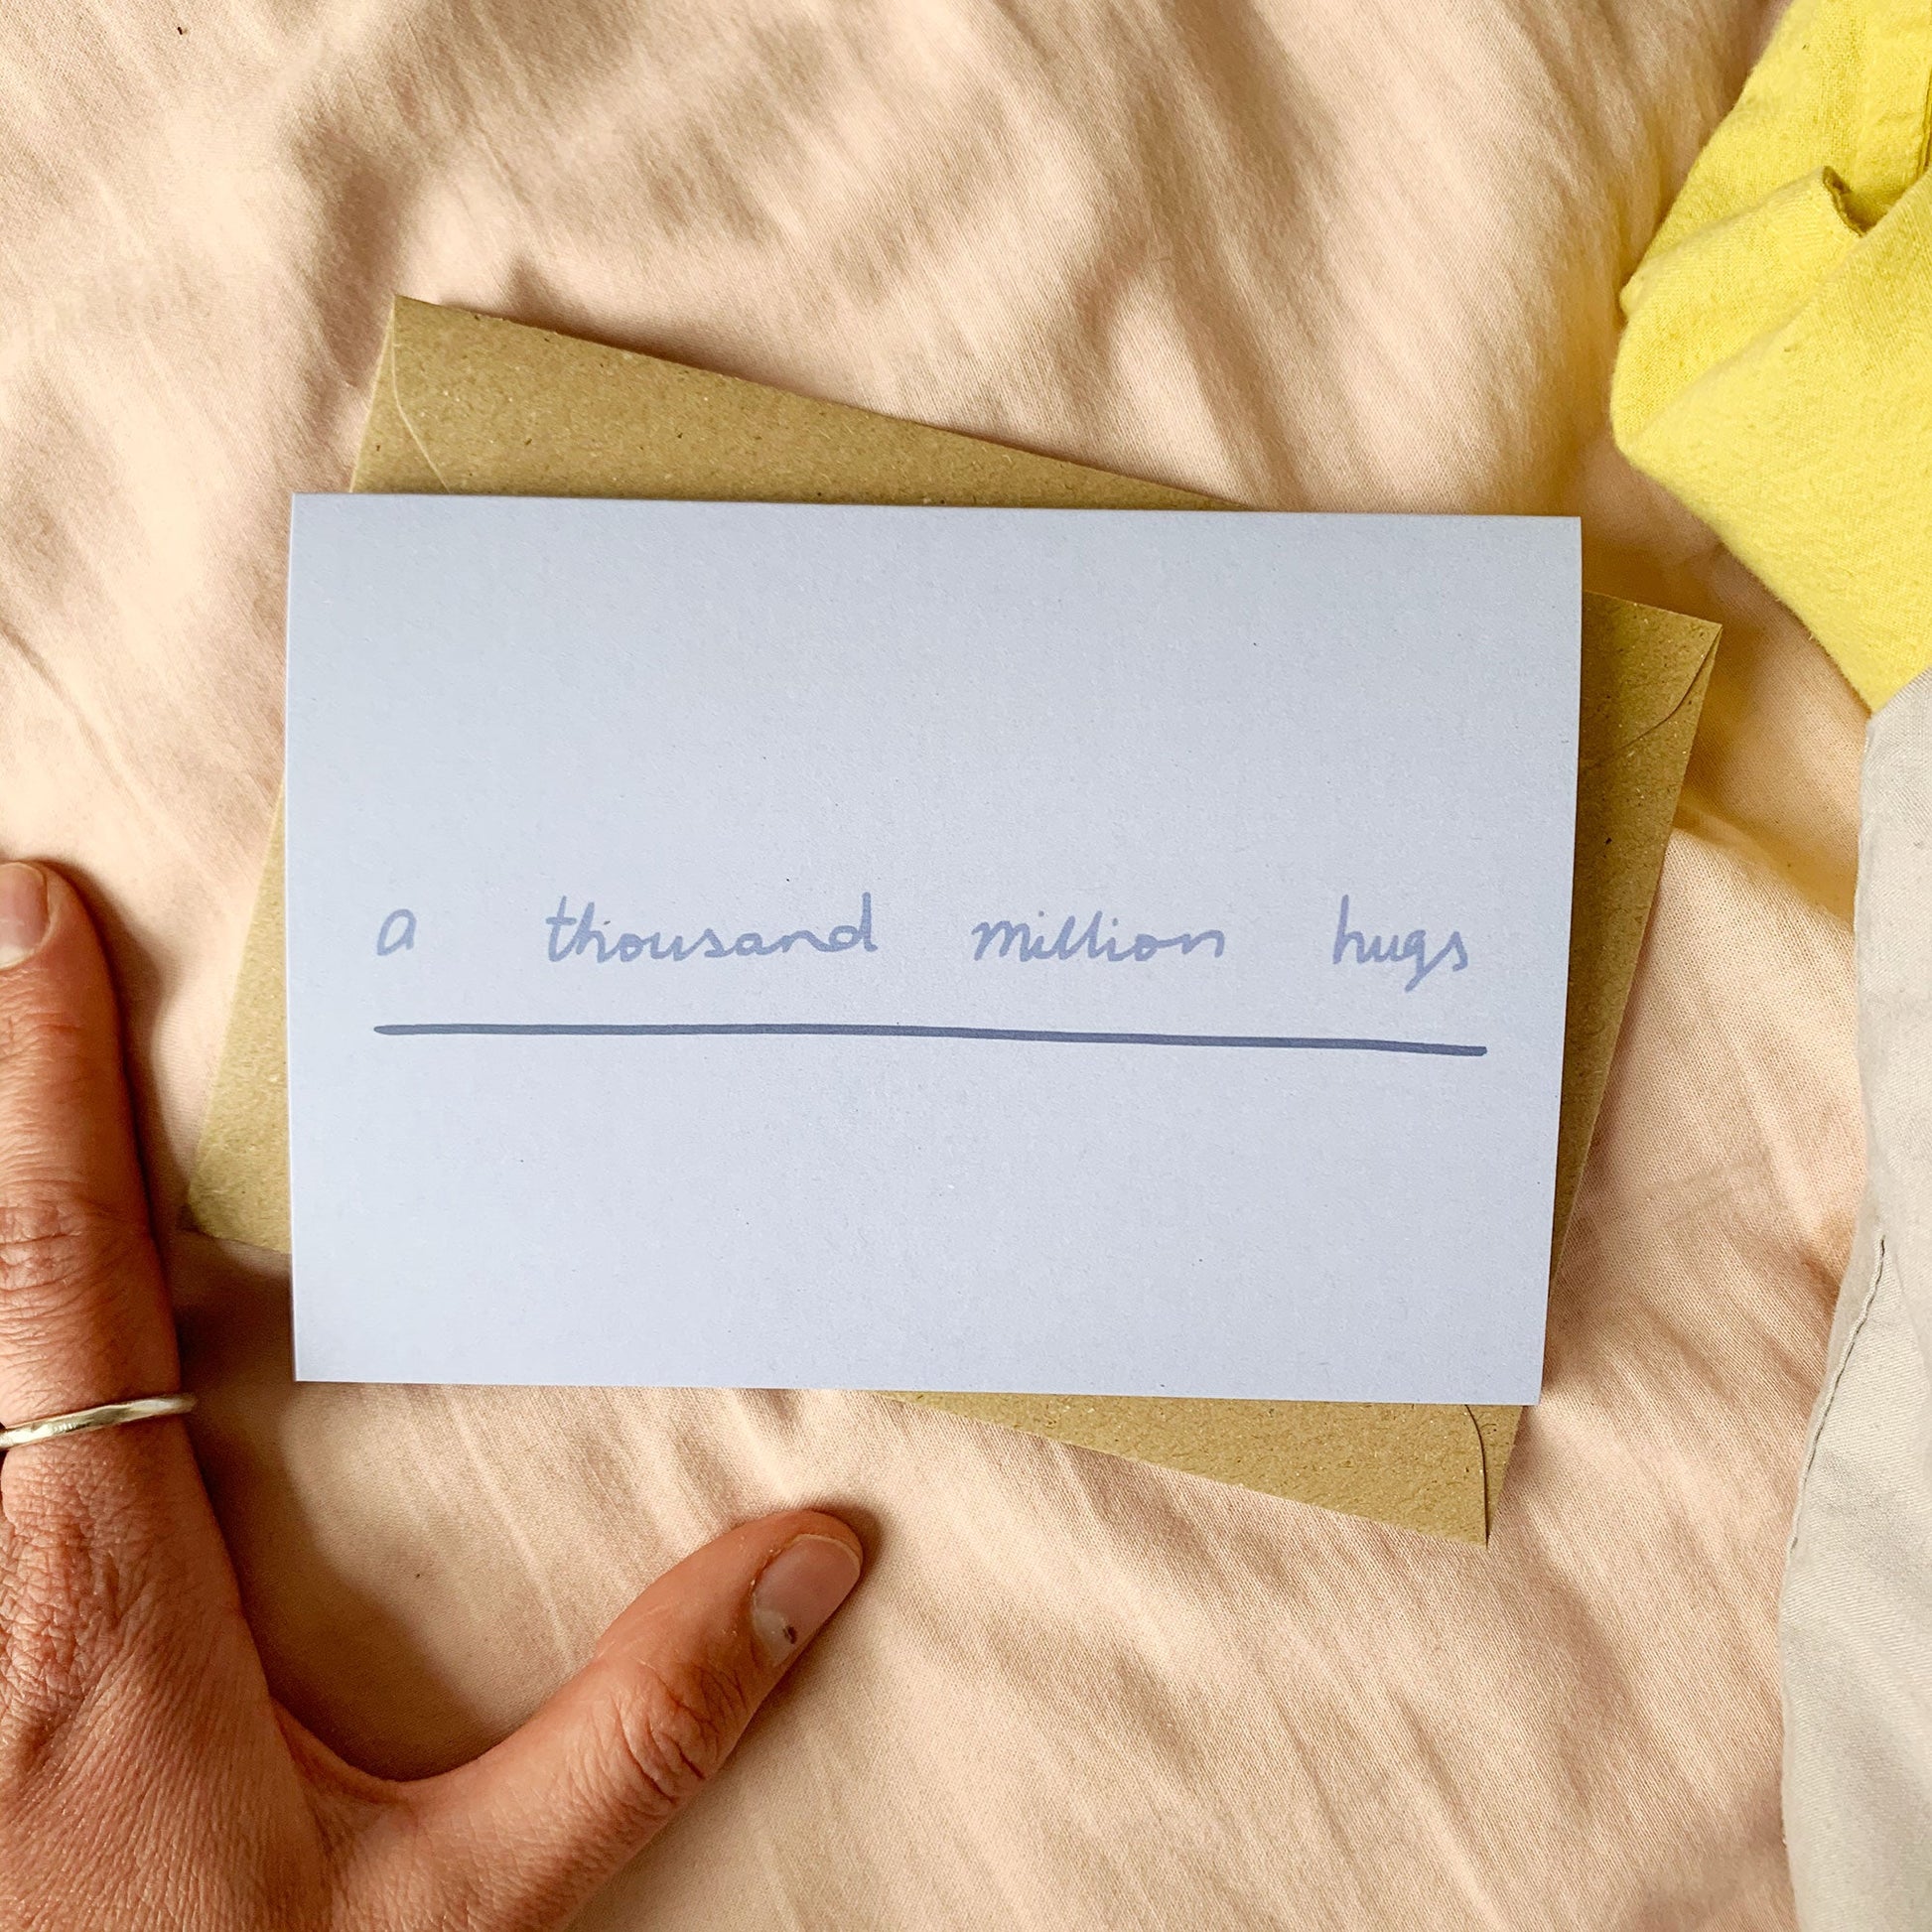 a thousand million hugs